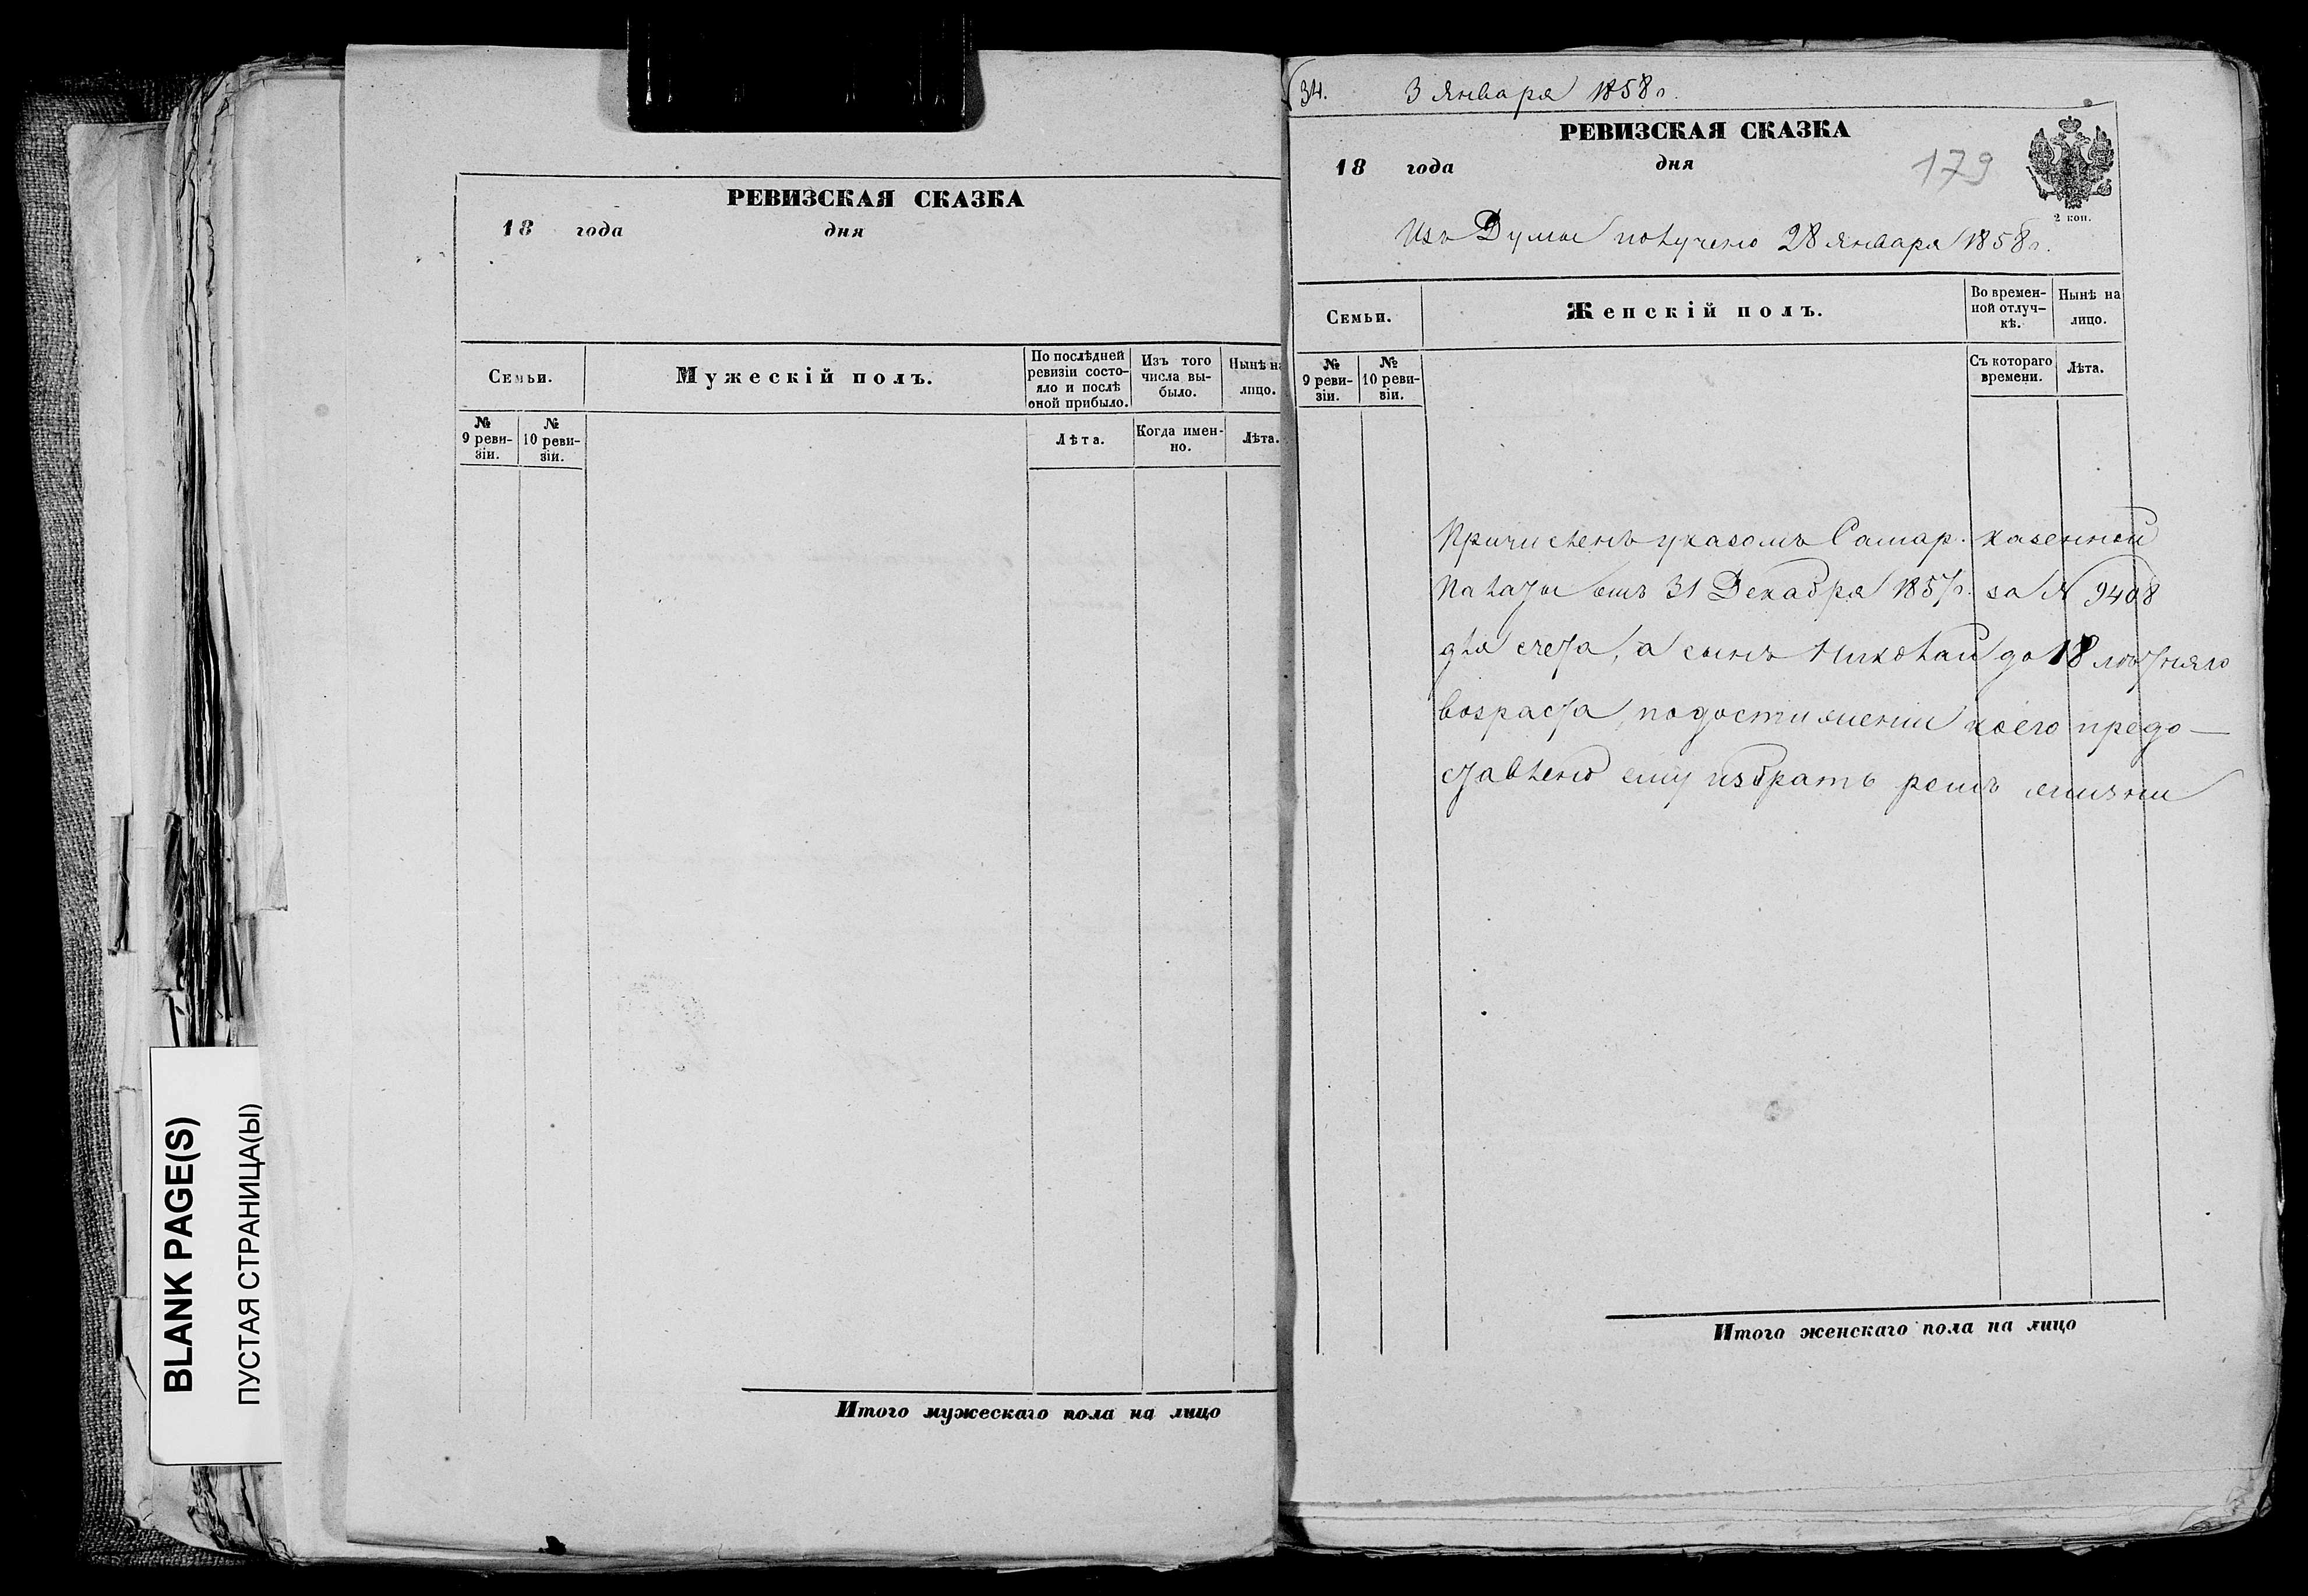 РЕВИЗСКАЯ СКАЗКА
18 года дня
Семьи.
Мужескій полъ.
По послѣдней
ревизіи состо-
яло и послѣ
оной прибыло.
Изъ того
числа вы-
было.
Нынѣ на
лицо.
№
9 реви-
зіи.
№
10 реви-
зіи.
Лѣта.
Когда имен-
но.
Лѣта.
Итого мужескаго пола на лицо
BLANK PAGE(S)
ПУСТАЯ СТРАНИЦА(Ы)
34. 3 Января 1858 г.
РЕВИЗСКАЯ СКАЗКА
18 года дня
179
2 коп.
Изъ Думы получено 28 Января 1858 г.
Семьи.
Женскій полъ.
Во времен-
ной отлуч-
кѣ.
Нынѣ на
лицо.
№
9 реви-
зіи.
№
10 реви-
зіи.
Съ котораго
времени.
Лѣта.
Причисленъ указомъ Самар. казенной
Палаты отъ 31 Декабря 1857 г. за № 9408
для счета, а сынъ Николай до 18 лѣтняго
возраста, по достижении коего предо-
ставлено ему избрать родъ жизни
Итого женскаго пола на лицо